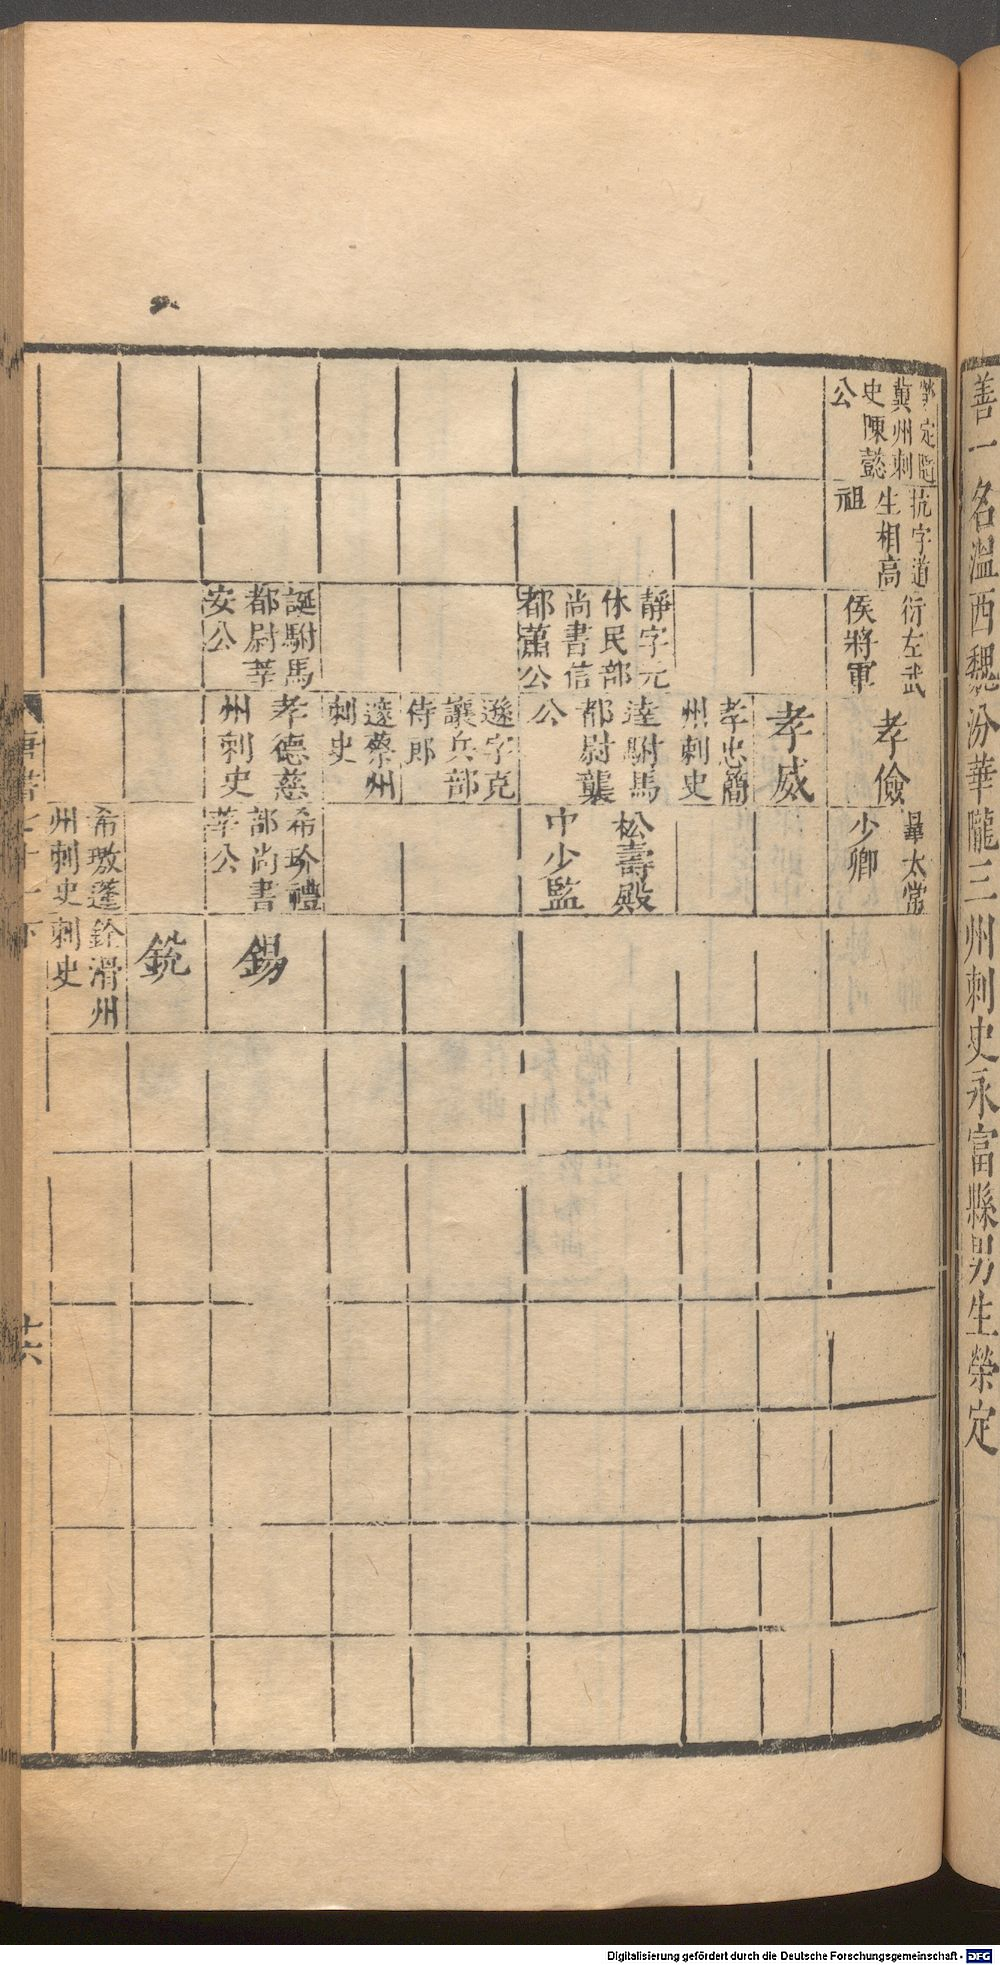 善一名溫西魏汾華隴三州刺史永富縣男生榮定
榮定隋
冀州刺
史陳懿
公
抗字道
生相高
祖
衍左武
侯將軍
孝儉
畢太常
少卿
孝威
孝忠簡
州刺史
靜字元
休民部
尚書信
都蕭公
逵駙馬
都尉襲
公
松壽殿
中少監
遜字克
讓兵部
侍郎
邃蔡州
刺史
誕駙馬
都尉莘
安公
孝德慈
州刺史
希玠禮
部尚書
莘公
錫
銳
希璬蓬
州刺史
銓滑州
刺史
唐書七十一下
十六
Digitalisierung gefördert durch die Deutsche Forschungsgemeinschaft - DFG